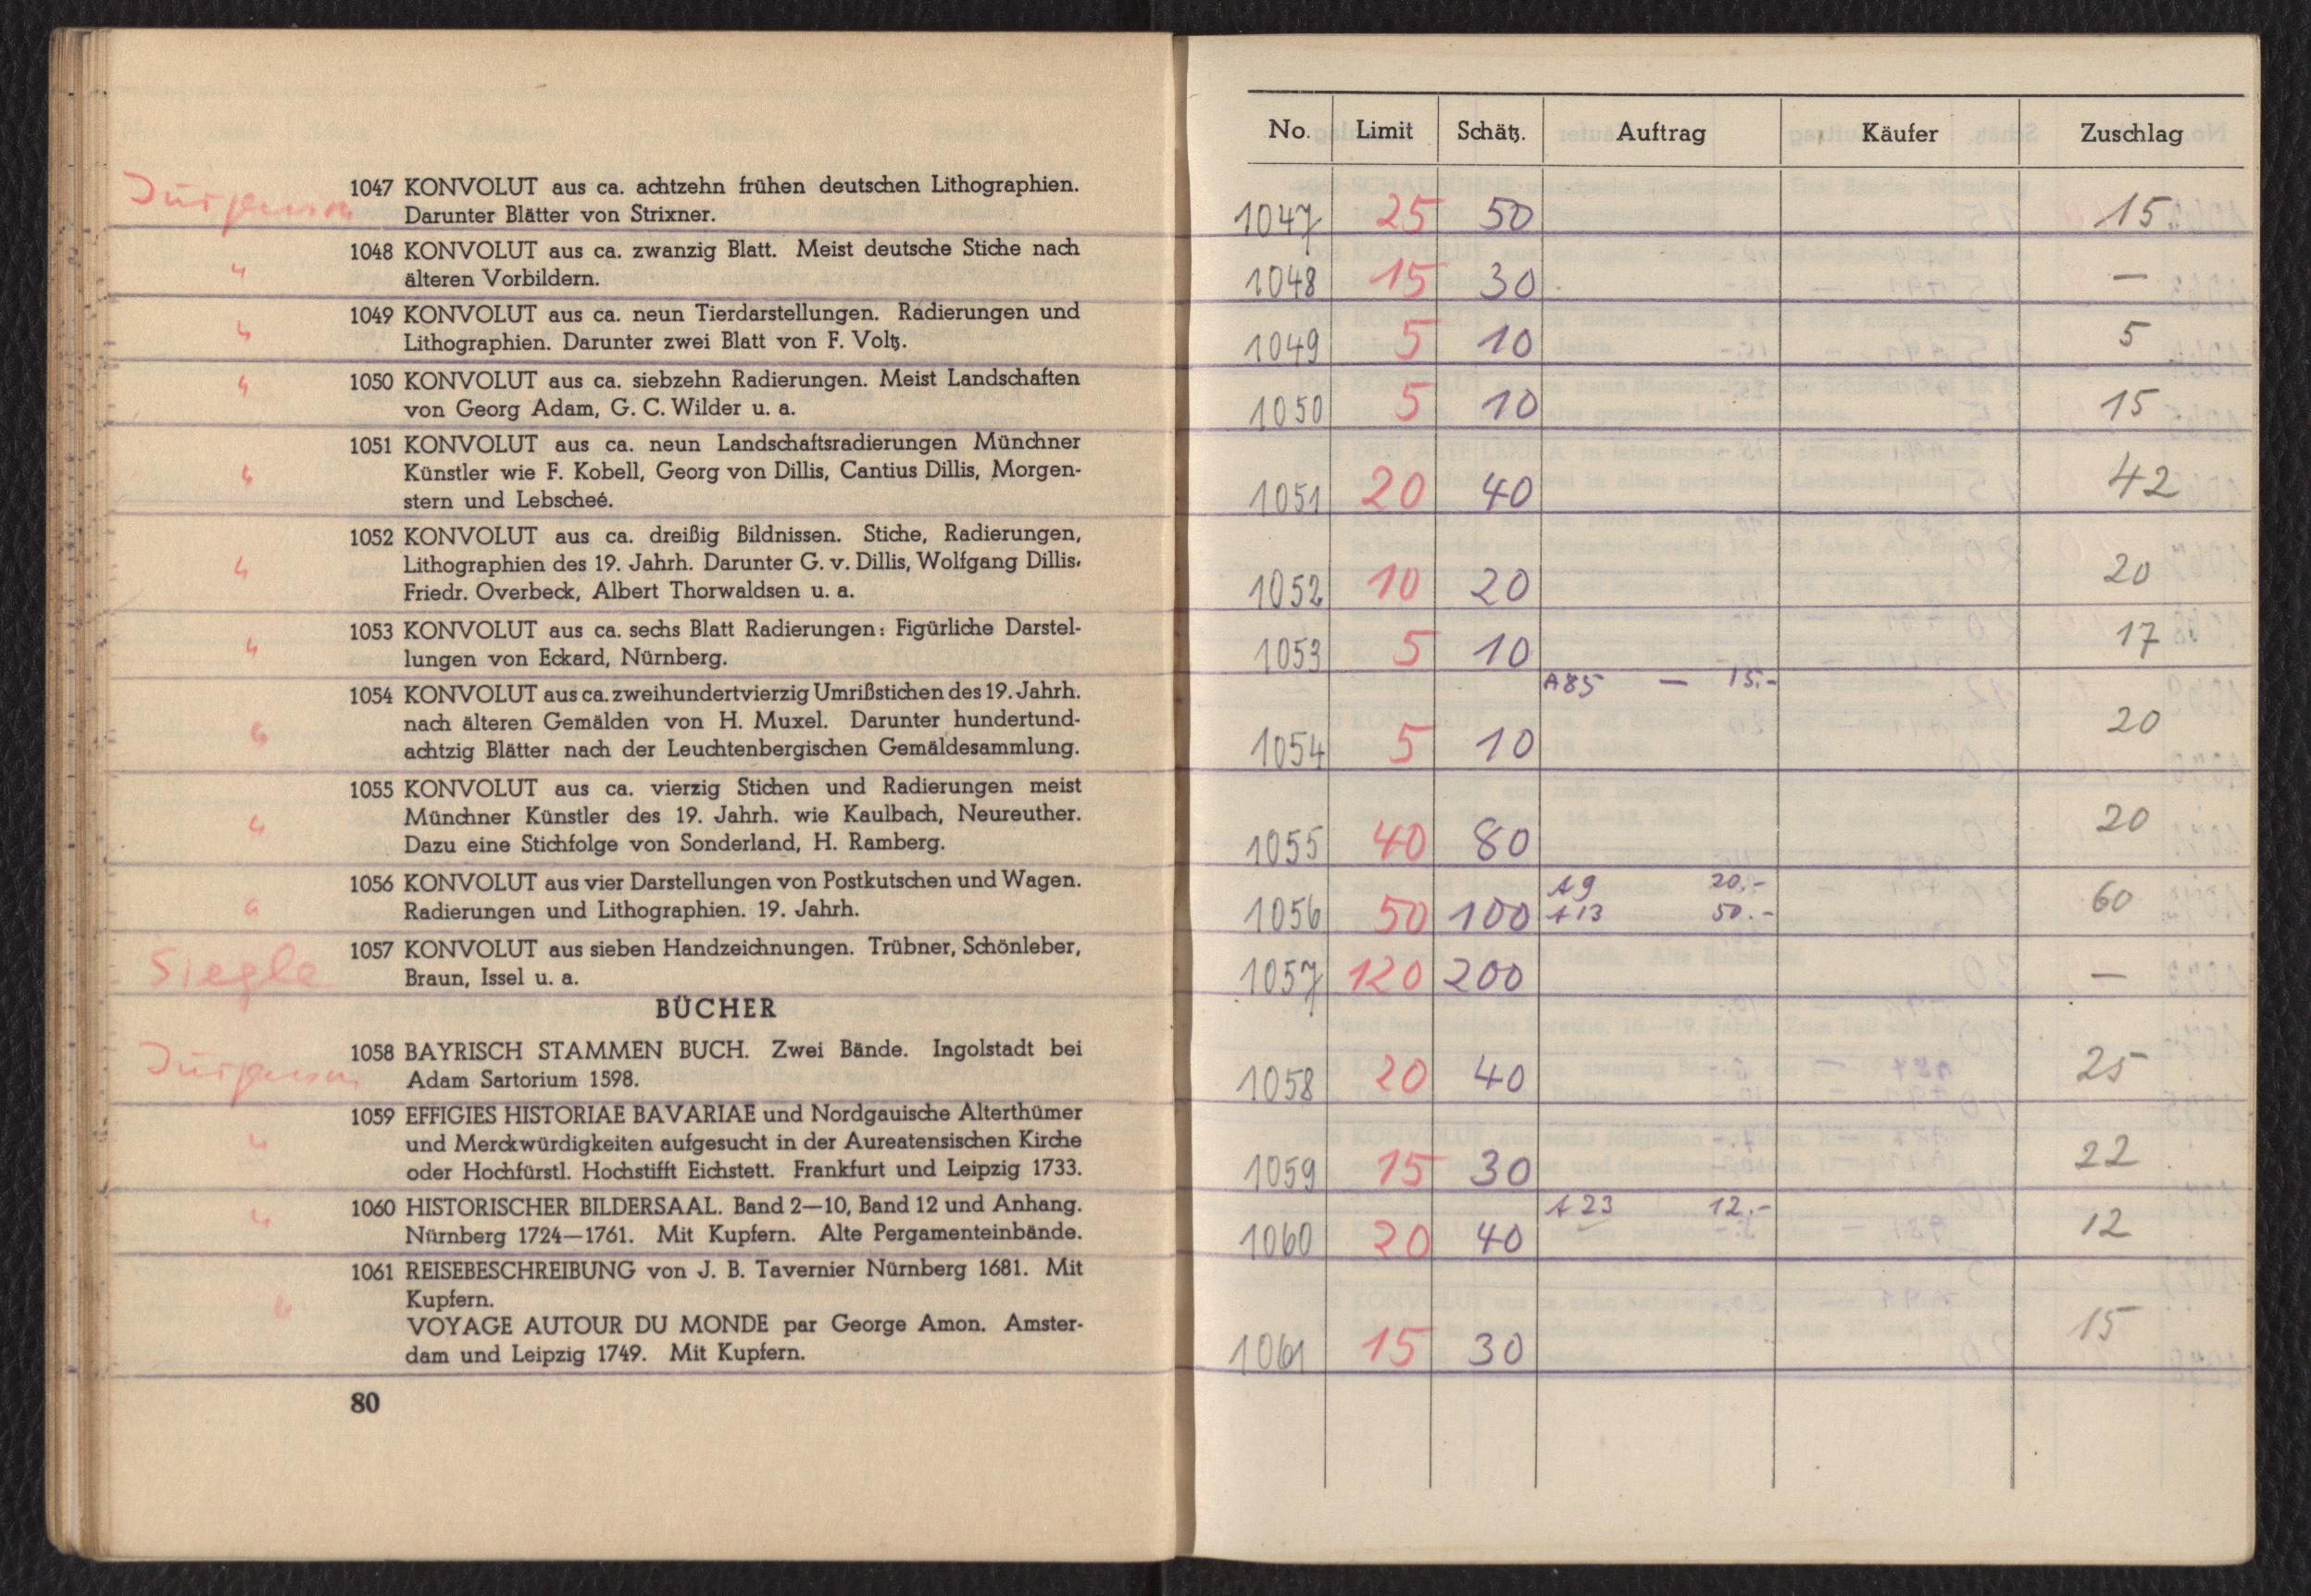 1047 KONVOLUT aus ca. achtzehn frühen deutschen Lithographien.
Darunter Blätter von Strixner.
1048 KONVOLUT aus ca. zwanzig Blatt. Meist deutsche Stiche nach
älteren Vorbildern.
1049 KONVOLUT aus ca. neun Tierdarstellungen. Radierungen und
Lithographien. Darunter zwei Blatt von F. Voltz.
1050 KONVOLUT aus ca. siebzehn Radierungen. Meist Landschaften
von Georg Adam, G. C. Wilder u. a.
1051 KONVOLUT aus ca. neun Landschaftsradierungen Münchner
Künstler wie F. Kobell, Georg von Dillis, Cantius Dillis, Morgen-
stern und Lebscheé.
1052 KONVOLUT aus ca. dreißig Bildnissen. Stiche, Radierungen,
Lithographien des 19. Jahrh. Darunter G. v. Dillis, Wolfgang Dillis,
Friedr. Overbeck, Albert Thorwaldsen u. a.
1053 KONVOLUT aus ca. sechs Blatt Radierungen: Figürliche Darstel-
lungen von Eckard, Nürnberg.
1054 KONVOLUT aus ca. zweihundertvierzig Umrißstichen des 19. Jahrh.
nach älteren Gemälden von H. Muxel. Darunter hundertund-
achtzig Blätter nach der Leuchtenbergischen Gemäldesammlung.
1055 KONVOLUT aus ca. vierzig Stichen und Radierungen meist
Münchner Künstler des 19. Jahrh. wie Kaulbach, Neureuther.
Dazu eine Stichfolge von Sonderland, H. Ramberg.
1056 KONVOLUT aus vier Darstellungen von Postkutschen und Wagen.
Radierungen und Lithographien. 19. Jahrh.
Siegle 1057 KONVOLUT aus sieben Handzeichnungen. Trübner, Schönleber,
Braun, Issel u. a.
BÜCHER
1058 BAYRISCH STAMMEN BUCH. Zwei Bände. Ingolstadt bei
Adam Sartorium 1598.
1059 EFFIGIES HISTORIAE BAVARIAE und Nordgauische Alterthümer
und Merckwürdigkeiten aufgesucht in der Aureatensischen Kirche
oder Hochfürstl. Hochstifft Eichstett. Frankfurt und Leipzig 1733.
1060 HISTORISCHER BILDERSAAL. Band 2—10, Band 12 und Anhang.
Nürnberg 1724—1761. Mit Kupfern. Alte Pergamenteinbände.
1061 REISEBESCHREIBUNG von J. B. Tavernier Nürnberg 1681. Mit
Kupfern.
VOYAGE AUTOUR DU MONDE par George Amon. Amster-
dam und Leipzig 1749. Mit Kupfern.
80
No. Limit Schätz. Auftrag Käufer Zuschlag
1047 25 50 15
1048 15 30 —
1049 5 10 5
1050 5 10 15
1051 20 40 42
1052 10 20 20
1053 5 10 17
A 85 — 15.-
1054 5 10 20
1055 40 80 20
A 9 20.-
1056 50 100 A 13 50.- 60
1057 120 200 —
1058 20 40 25
1059 15 30 22
A 23 12.-
1060 20 40 12
1061 15 30 15